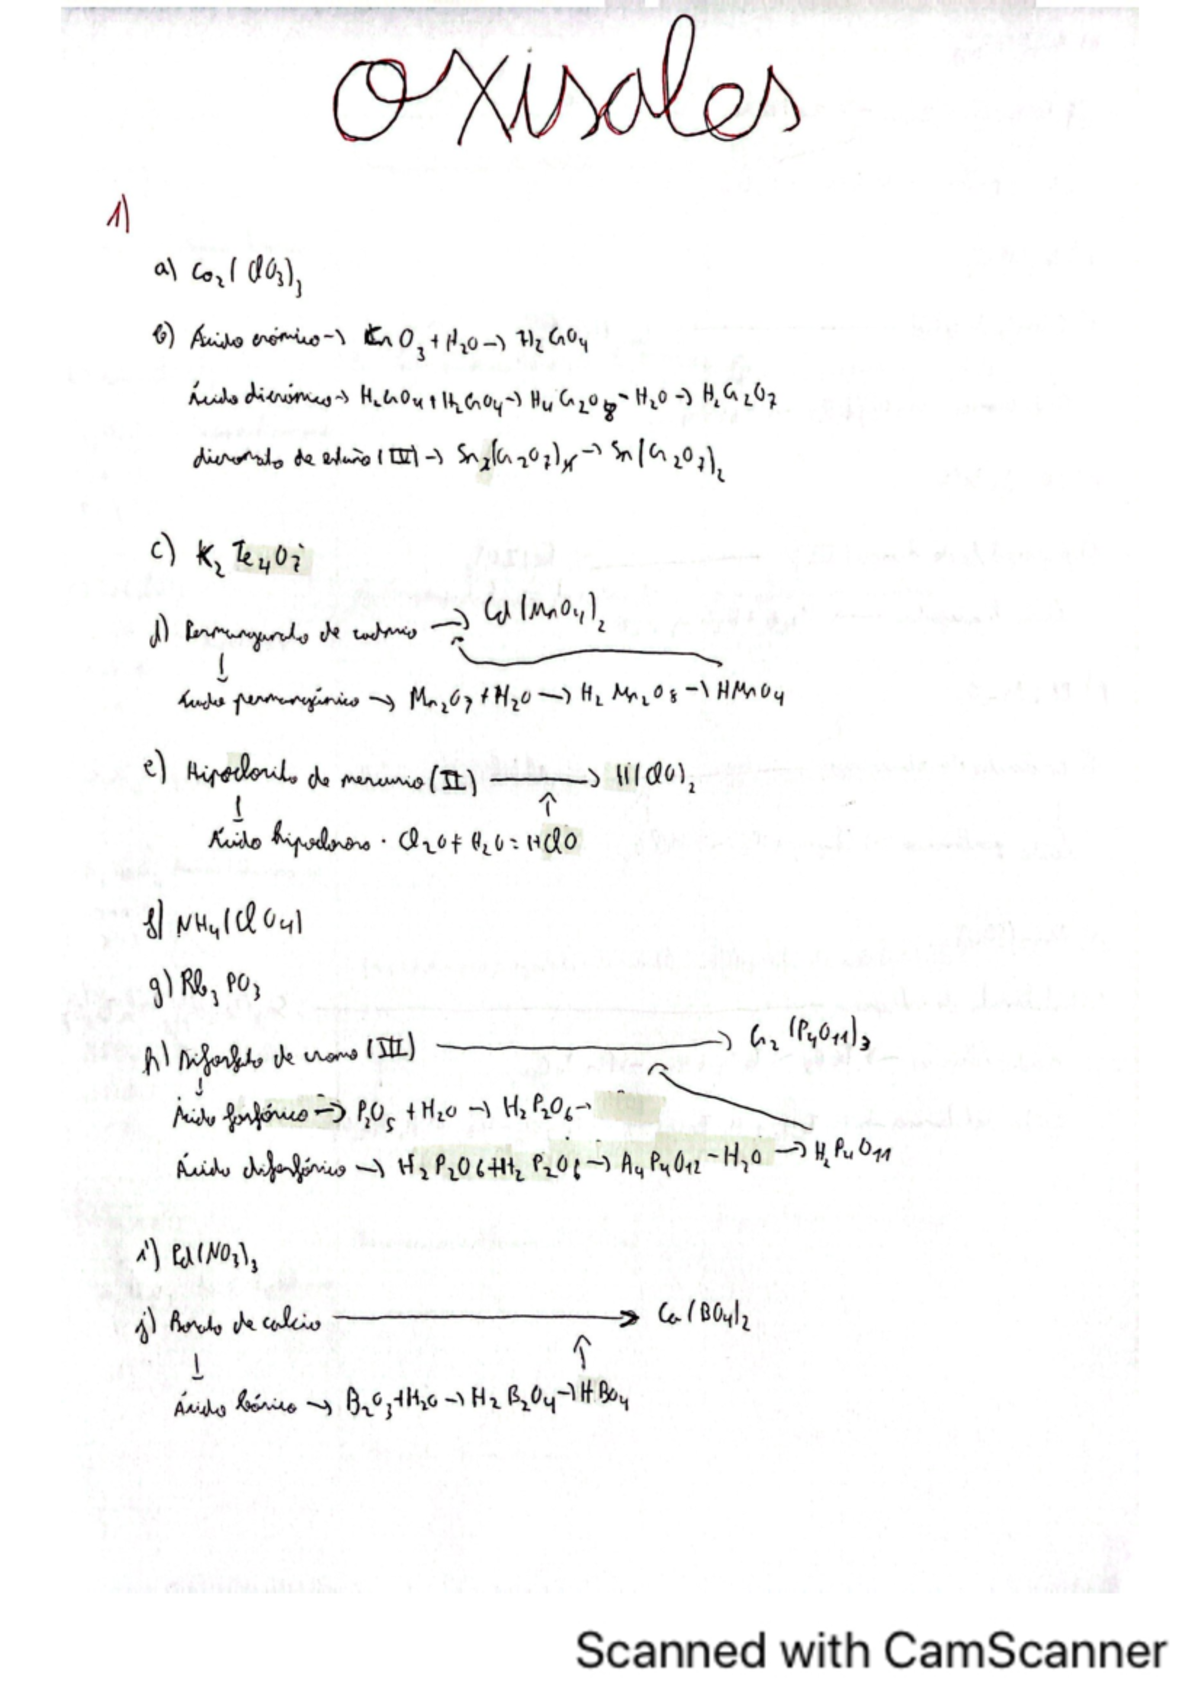 oxisales
1)
a) Co2(ClO3)3
b) Ácido crómico → CrO3 + H2O → H2CrO4
Ácido dicrómico → H2CrO4 + H2CrO4 → H4Cr2O8 - H2O → H2Cr2O7
dicromato de estaño (IV) → Sn2(Cr2O7)4 → Sn(Cr2O7)2
c) K2Te4O7
d) Permanganato de cadmio → Cd(MnO4)2
Ácido permangánico → Mn2O7 + H2O → H2Mn2O8 → HMnO4
e) Hipoclorito de mercurio (II) → H(ClO)2
Ácido hipocloroso · Cl2O + H2O = HClO
f) NH4(ClO4)
g) Rb3PO3
h) Difosfato de cromo (III) → Cr2(P4O11)3
Ácido fosfórico → P2O5 + H2O → H2P2O6 -
Ácido difosfórico → H2P2O6 + H2P2O6 → A4P4O12 - H2O → H2P4O11
i) Pd(NO3)3
j) Borato de calcio → Ca(BO4)2
Ácido bórico → B2O3 + H2O → H2B2O4 → HBO4
Scanned with CamScanner